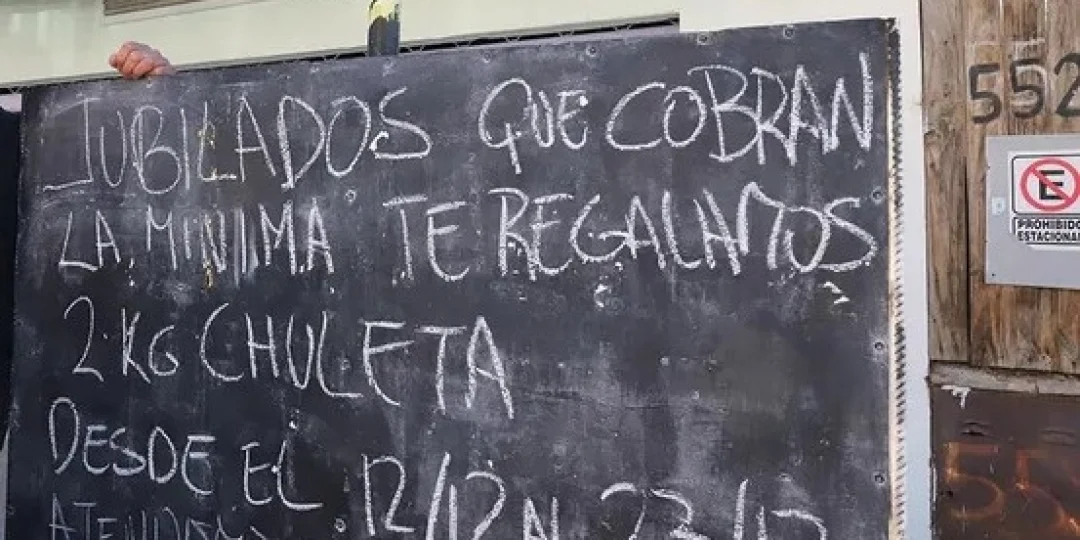 JUBILADOS QUE COBRAN
LA MINIMA TE REGALAMOS
2 KG CHULETA
DESDE EL 12/12 AL 23/12
552
E
PROHIBIDO